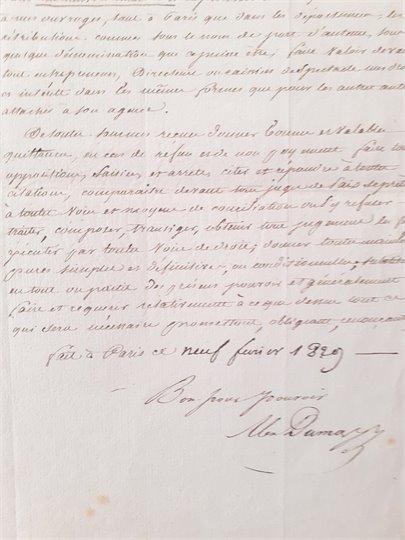 à mes ouvrages, tant à Paris que dans les départemens, les
rétributions connues sous le nom de part d'auteur, sous
quelque dénomination que ce puisse être; faire valoir devant
tout entrepreneur, Directeur ou caissier de spectacle mes droits
et intérêts dans les mêmes formes que pour les autres auteurs
attachés à son agence.
De toutes sommes reçues donner bonne et valable
quittance, en cas de refus et de non payement faire tous
oppositions, saisies et arrêts, citer et répondre à toute
citation, comparaître devant tous juges de Paix se prêter
à toute voie et moyens de conciliation ou s'y refuser
traiter, composer, transiger, obtenir tous jugemens les faire
exécuter par toute voie de droit; donner toute main
pures simples et définitives, ou conditionnelles,
en tout ou partie des présens pouvoirs et généralement
faire et requérir relativement à ce que dessus tout ce
qui sera nécessaire promettant, obligeant,
fait à Paris ce neuf février 1829
Bon pour pouvoir
Alex Dumas